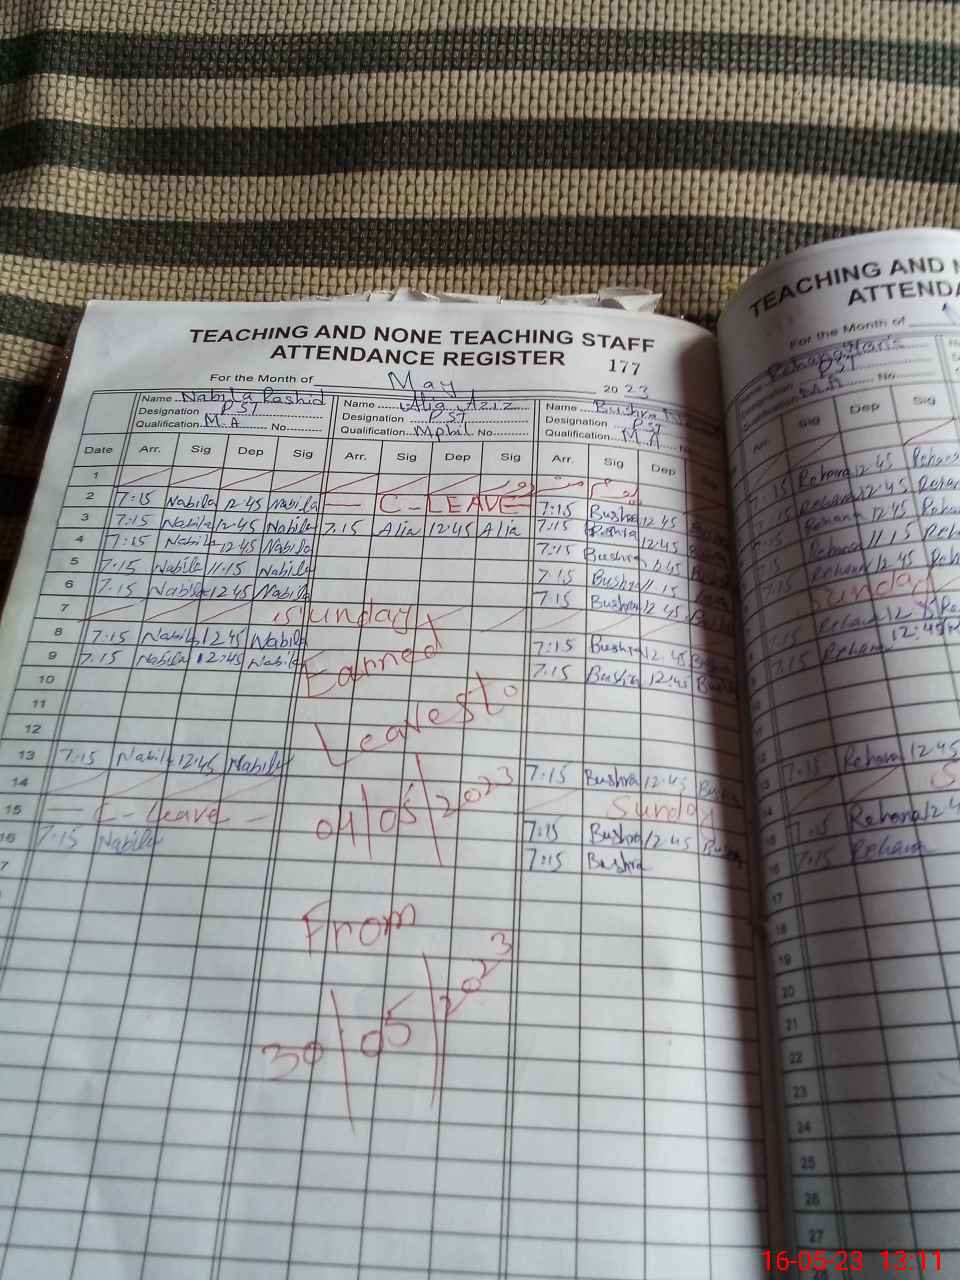 TEACHING AND NONE TEACHING STAFF
ATTENDANCE REGISTER 177
For the Month of May 2023
Name Nabila Rashid Name Alia Aziz Name Bushra
Designation PST Designation PST Designation PST
Qualification M.A No. Qualification Mphil No. Qualification M.A No.
Date Arr. Sig Dep Sig Arr. Sig Dep Sig Arr. Sig Dep
1
2 7:15 Nabila 12:45 Nabila C-LEAVE 7:15 Bushra 12:45
3 7:15 Nabila 12:45 Nabila 7:15 Alia 12:45 Alia 7:15 Bushra 12:45
4 7:15 Nabila 12:45 Nabila 7:15 Bushra 12:45
5 7:15 Nabila 11:15 Nabila 7:15 Bushra 11:15
6 7:15 Nabila 12:45 Nabila 7:15 Bushra 12:45
7 Sunday
8 7:15 Nabila 12:45 Nabila 7:15 Bushra 12:45
9 7:15 Nabila 12:45 Nabila 7:15 Bushra 12:45
10
11
12
13 7:15 Nabila 12:45 Nabila 7:15 Bushra 12:45
14 Sunday
15 C-Leave 7:15 Bushra 12:45
16 7:15 Nabila 7:15 Bushra
Earned
Leaves to
04/05/2023
From
30/05/2023
TEACHING AND
ATTENDA
For the Month of
M.A No.
Arr. Sig Dep Sig
Rehana 12:45 Rehana
Rehana 12:45
Rehana 12:45
Rehana 11:15
Rehana 12:45
Sunday
Rehana
7:15 Rehana 12:45
7:15 Rehana 12:45
7:15 Rehana 12:4
7:15 Rehana
17
18
19
20
21
22
23
24
25
26
27
16-05-23 13:11